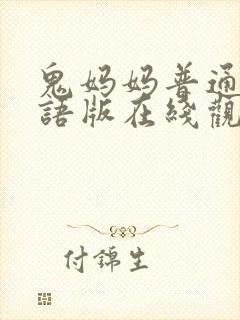 鬼妈妈普通
語版在綫觀
付錦生